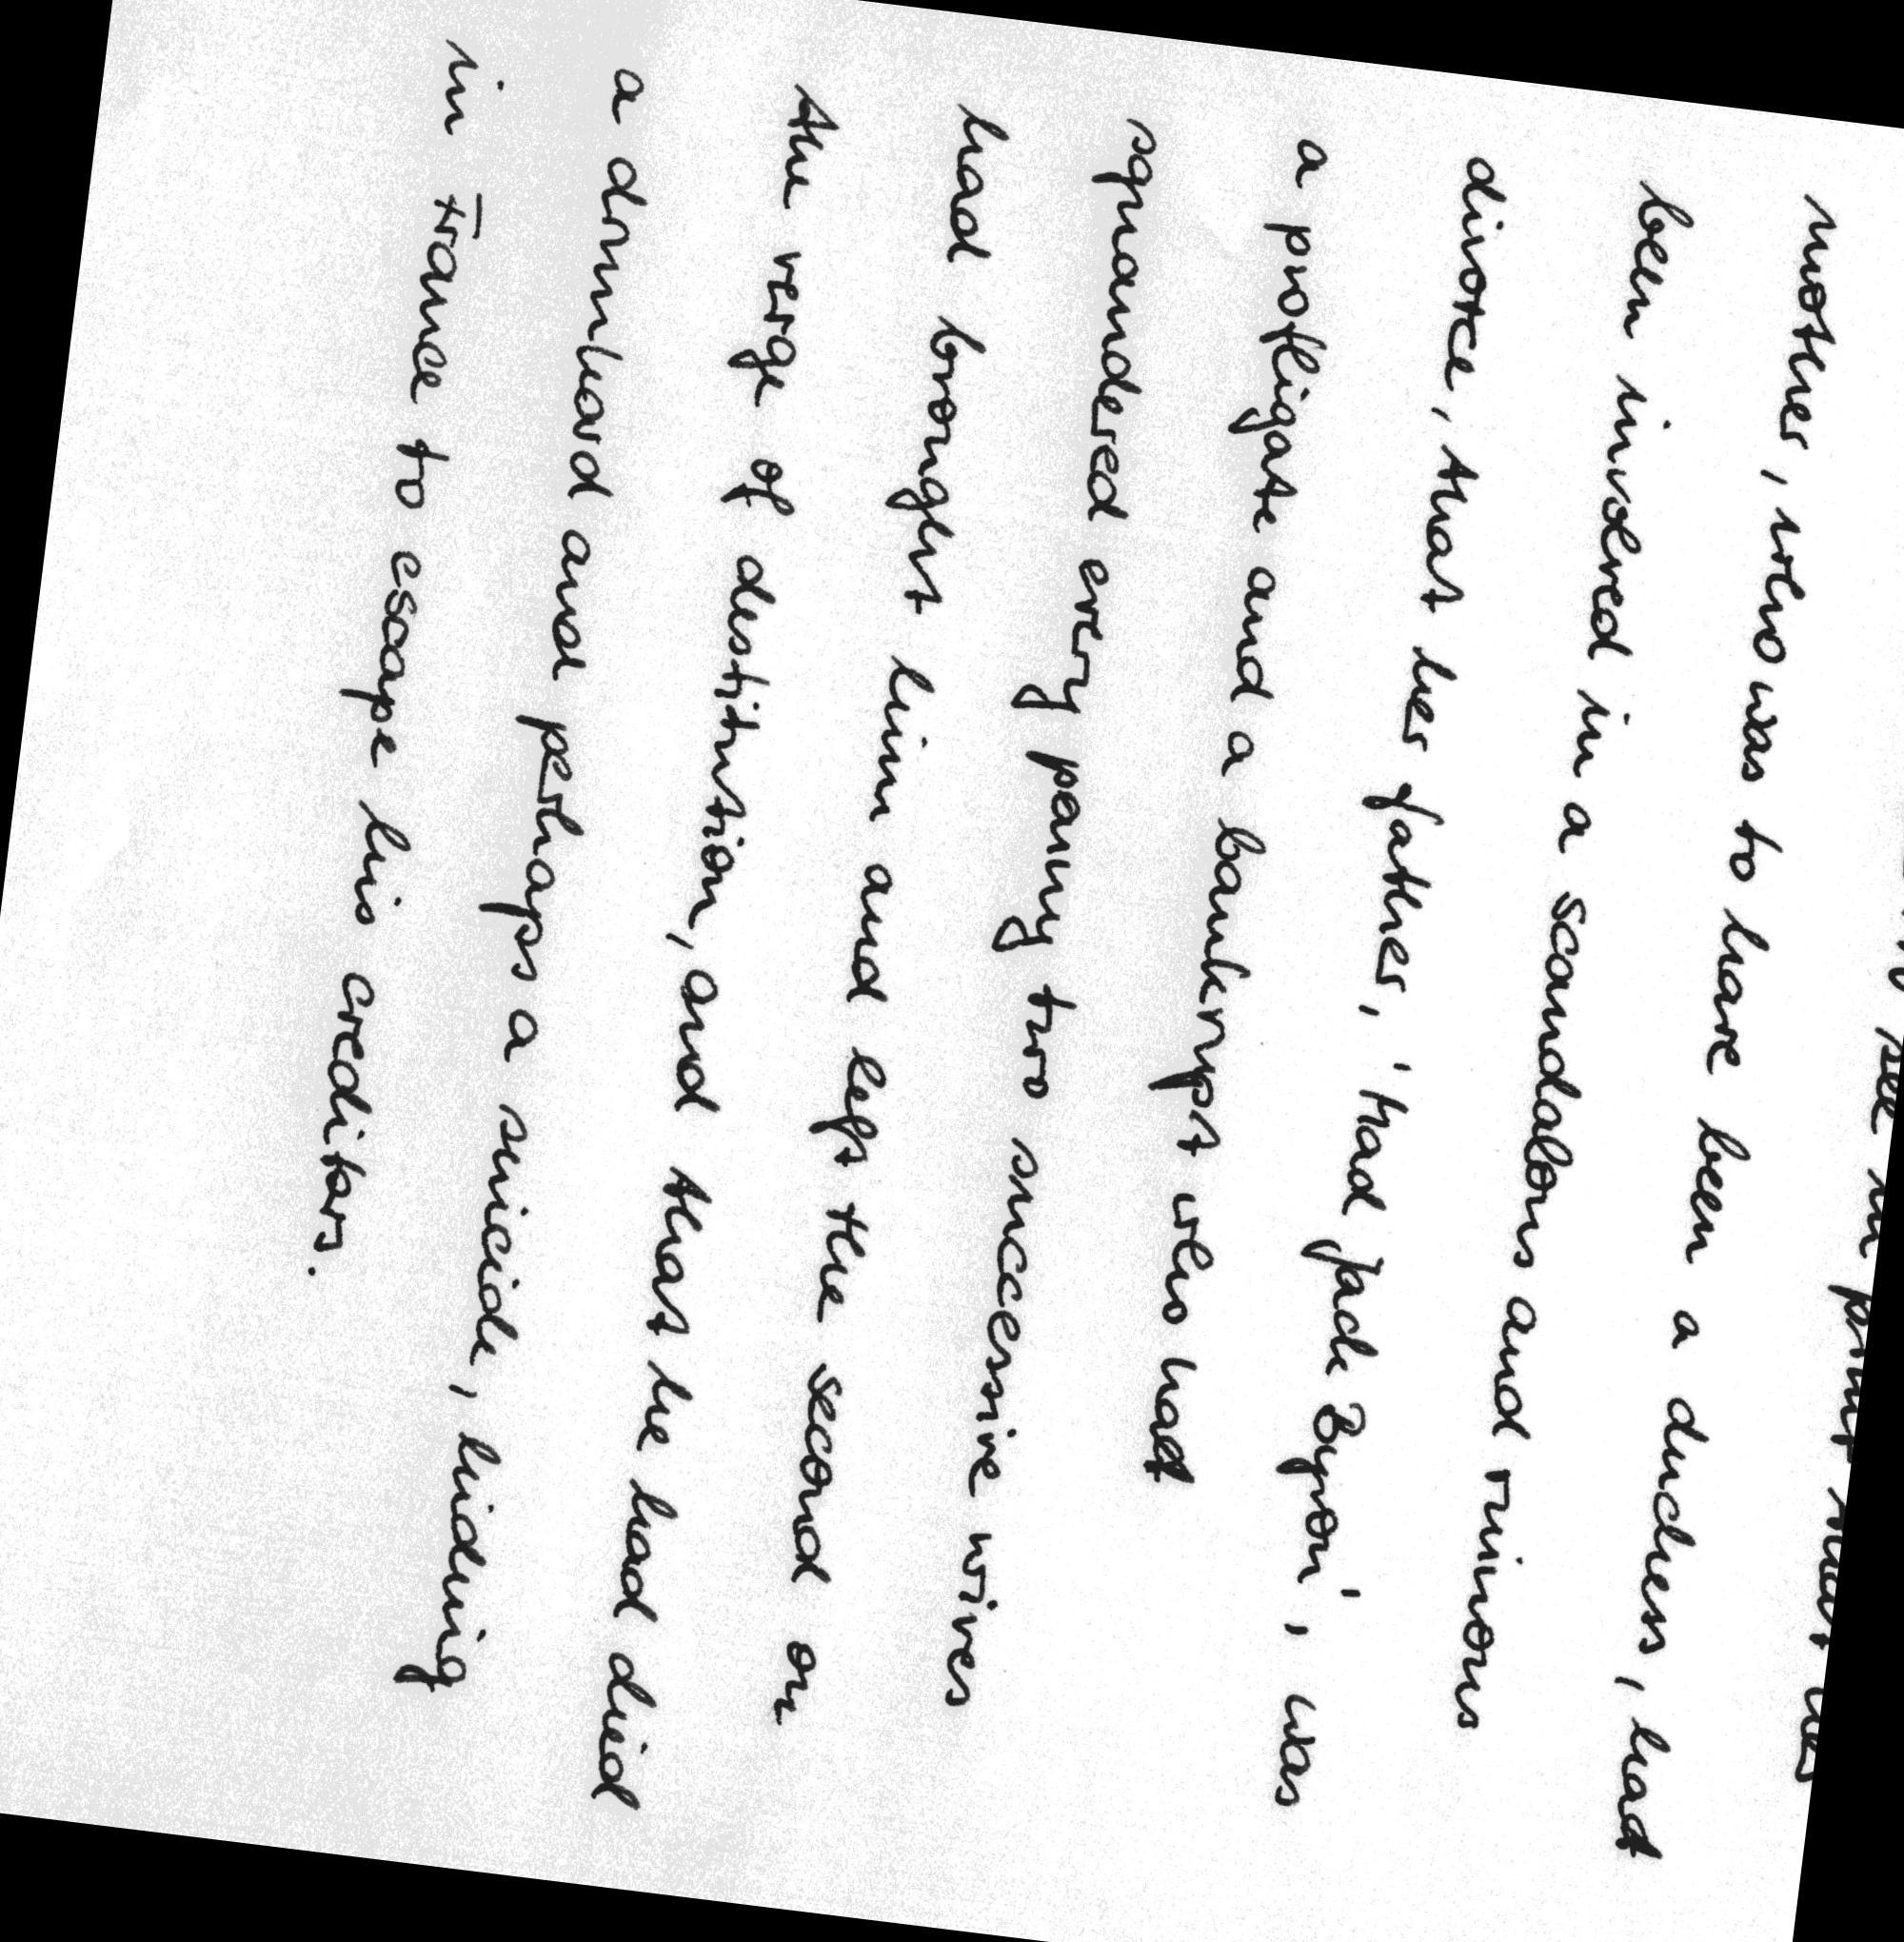 see in print that her
mother, who was to have been a duchess, had
been involved in a scandalous and ruinous
divorce, that her father, 'Mad Jack Byron', was
a profligate and a bankrupt who had
squandered every penny two successive wives
had brought him and left the second on
the verge of destitution, and that he had died
a drunkard and perhaps a suicide, hiding
in France to escape his creditors.